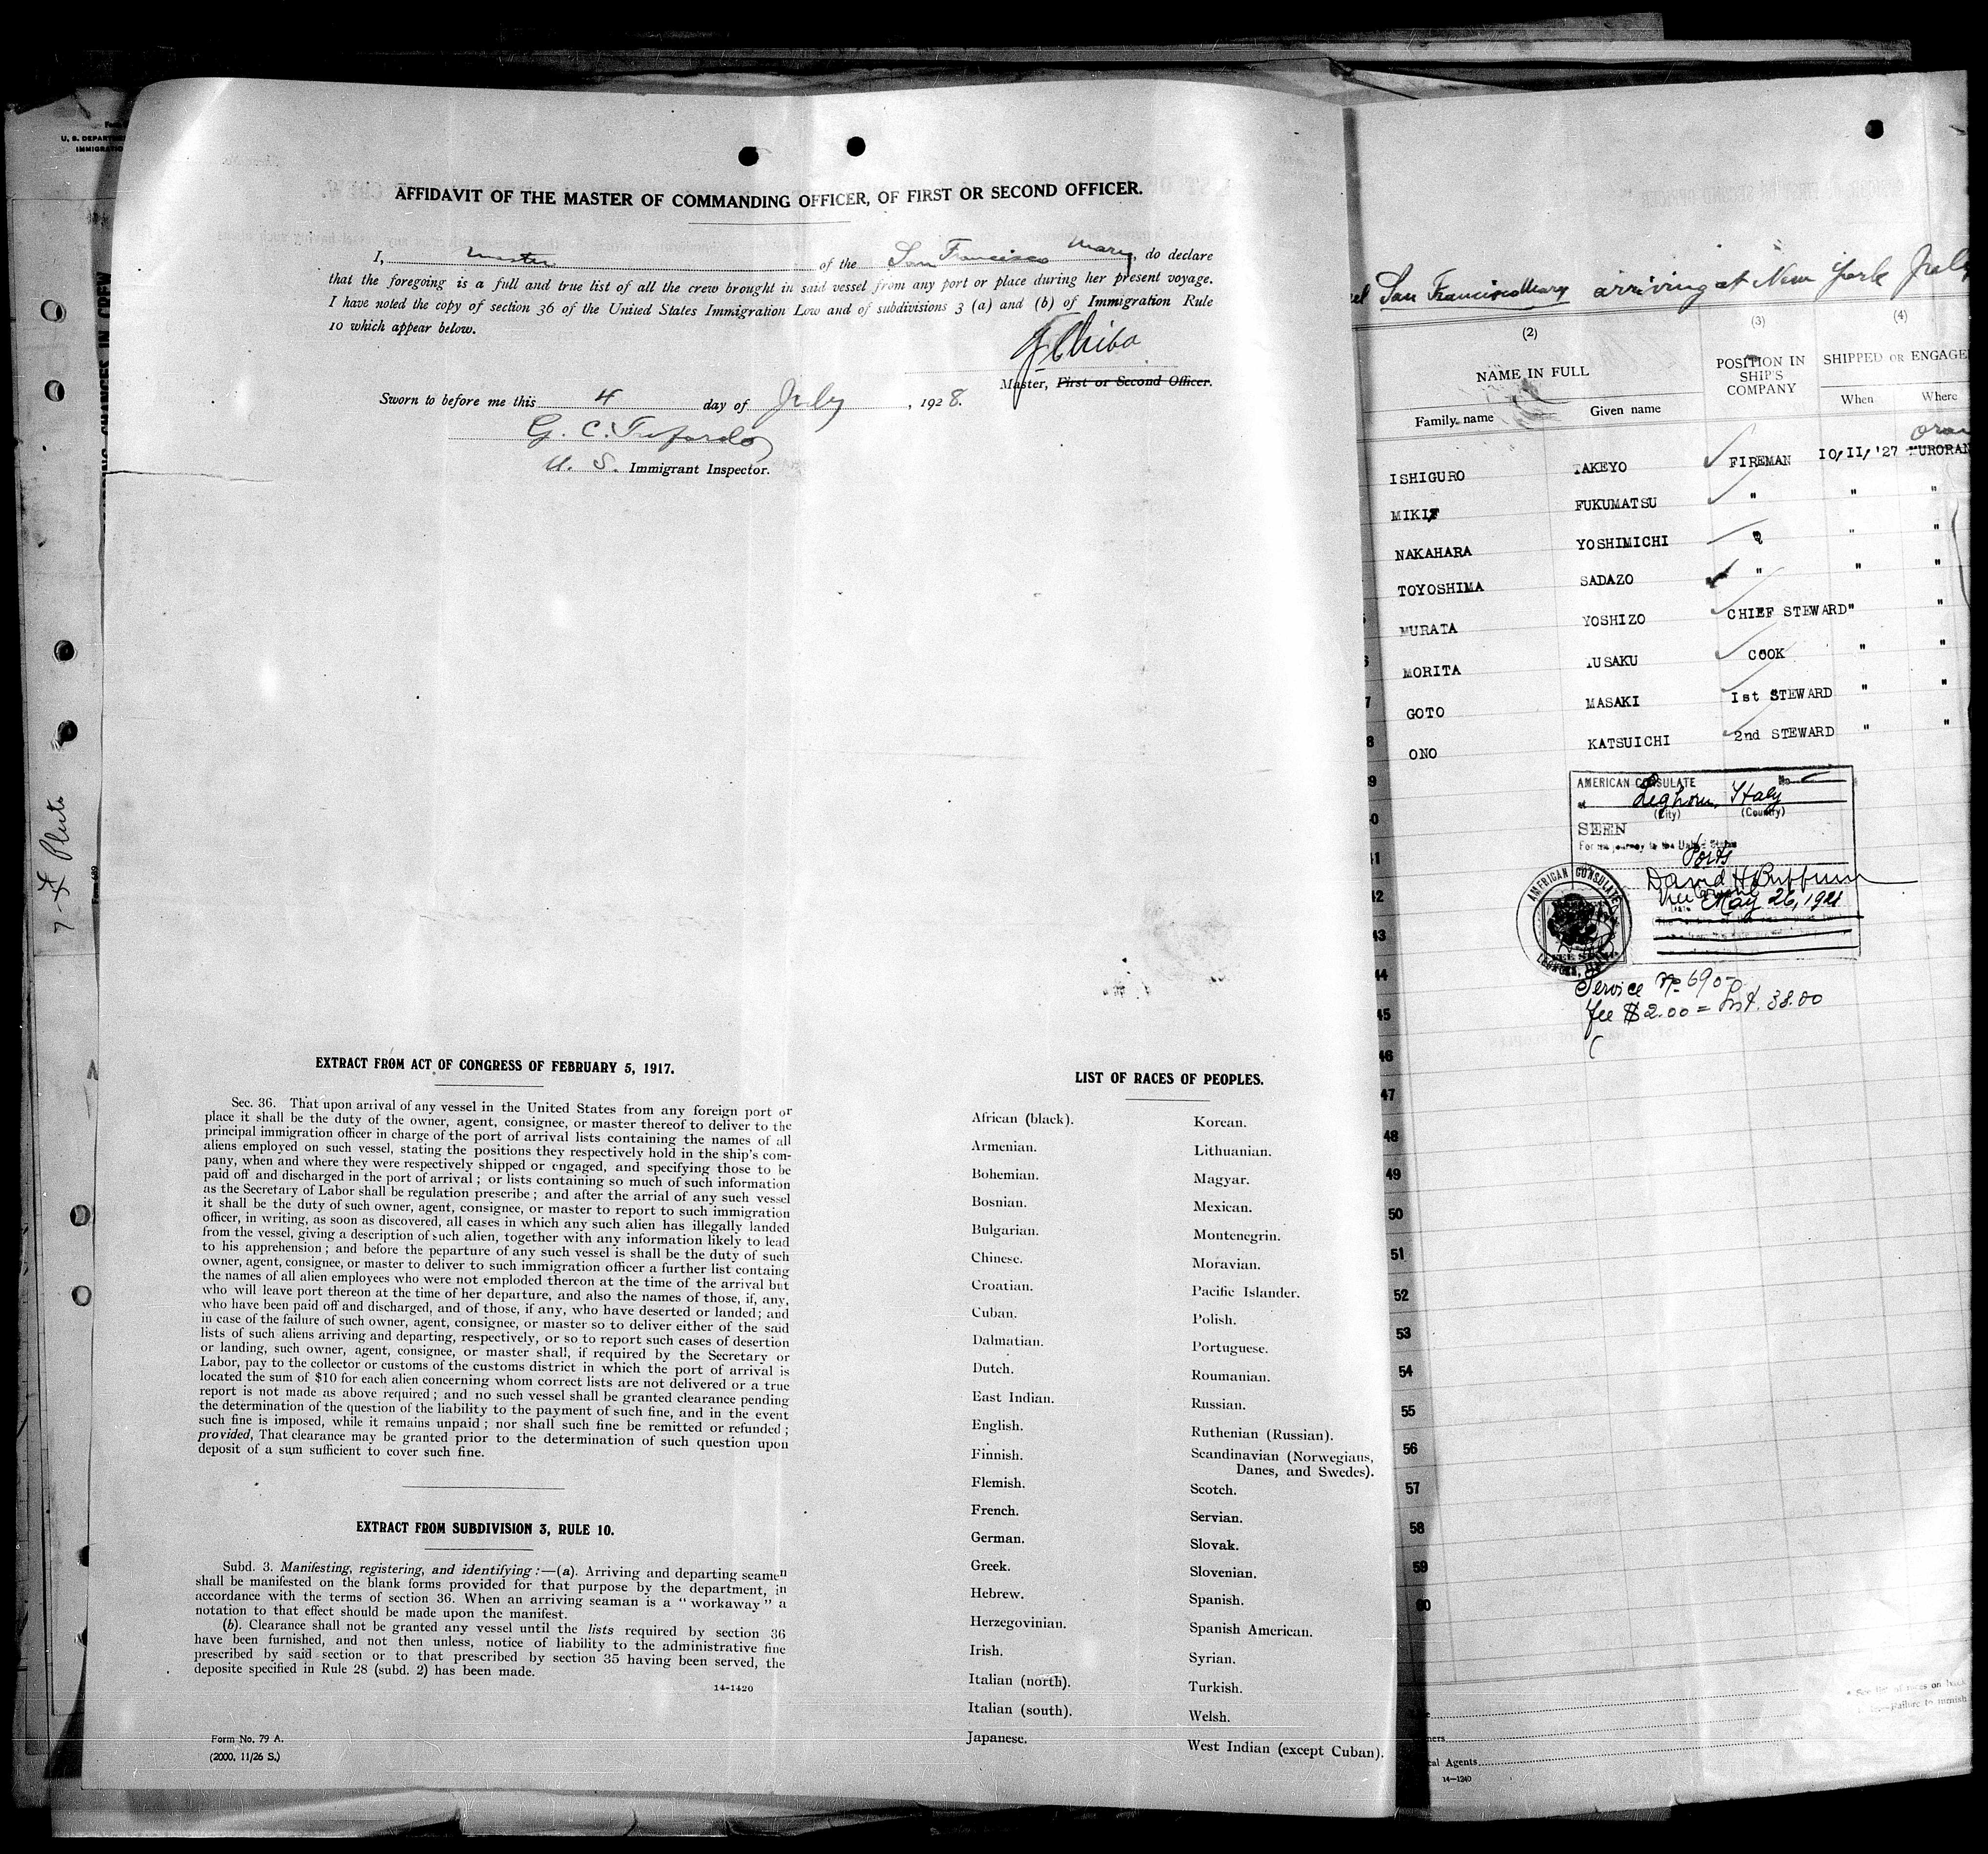 U. S. DEPART
IMMIGRATIO
CHANGES IN CREW
7-4 Pluto
Form 689
AFFIDAVIT OF THE MASTER OF COMMANDING OFFICER, OF FIRST OR SECOND OFFICER.
I, master of the San Francisco Maru, do declare
that the foregoing is a full and true list of all the crew brought in said vessel from any port or place during her present voyage.
I have noted the copy of section 36 of the United States Immigration Low and of subdivisions 3 (a) and (b) of Immigration Rule
10 which appear below.
J Chiba
Master, First or Second Officer.
Sworn to before me this 4 day of July, 1928.
G. C.
U. S. Immigrant Inspector.
EXTRACT FROM ACT OF CONGRESS OF FEBRUARY 5, 1917.
Sec. 36. That upon arrival of any vessel in the United States from any foreign port or
place it shall be the duty of the owner, agent, consignee, or master thereof to deliver to the
principal immigration officer in charge of the port of arrival lists containing the names of all
aliens employed on such vessel, stating the positions they respectively hold in the ship's com-
pany, when and where they were respectively shipped or engaged, and specifying those to be
paid off and discharged in the port of arrival; or lists containing so much of such information
as the Secretary of Labor shall be regulation prescribe; and after the arrial of any such vessel
it shall be the duty of such owner, agent, consignee, or master to report to such immigration
officer, in writing, as soon as discovered, all cases in which any such alien has illegally landed
from the vessel, giving a description of such alien, together with any information likely to lead
to his apprehension; and before the peparture of any such vessel is shall be the duty of such
owner, agent, consignee, or master to deliver to such immigration officer a further list containg
the names of all alien employees who were not emploded thereon at the time of the arrival but
who will leave port thereon at the time of her departure, and also the names of those, if, any,
who have been paid off and discharged, and of those, if any, who have deserted or landed; and
in case of the failure of such owner, agent, consignee, or master so to deliver either of the said
lists of such aliens arriving and departing, respectively, or so to report such cases of desertion
or landing, such owner, agent, consignee, or master shall, if required by the Secretary or
Labor, pay to the collector or customs of the customs district in which the port of arrival is
located the sum of $10 for each alien concerning whom correct lists are not delivered or a true
report is not made as above required; and no such vessel shall be granted clearance pending
the determination of the question of the liability to the payment of such fine, and in the event
such fine is imposed, while it remains unpaid; nor shall such fine be remitted or refunded;
provided, That clearance may be granted prior to the determination of such question upon
deposit of a sum sufficient to cover such fine.
EXTRACT FROM SUBDIVISION 3, RULE 10.
Subd. 3. Manifesting, registering, and identifying:—(a). Arriving and departing seamen
shall be manifested on the blank forms provided for that purpose by the department, in
accordance with the terms of section 36. When an arriving seaman is a "workaway" a
notation to that effect should be made upon the manifest.
(b). Clearance shall not be granted any vessel until the lists required by section 36
have been furnished, and not then unless, notice of liability to the administrative fine
prescribed by said section or to that prescribed by section 35 having been served, the
deposite specified in Rule 28 (subd. 2) has been made.
14-1420
Form No. 79 A.
(2000, 11/26 S.)
LIST OF RACES OF PEOPLES.
African (black).
Armenian.
Bohemian.
Bosnian.
Bulgarian.
Chinese.
Croatian.
Cuban.
Dalmatian.
Dutch.
East Indian.
English.
Finnish.
Flemish.
French.
German.
Greek.
Hebrew.
Herzegovinian.
Irish.
Italian (north).
Italian (south).
Japanese.
Korean.
Lithuanian.
Magyar.
Mexican.
Montenegrin.
Moravian.
Pacific Islander.
Polish.
Portuguese.
Roumanian.
Russian.
Ruthenian (Russian).
Scandinavian (Norwegians,
Danes, and Swedes).
Scotch.
Servian.
Slovak.
Slovenian.
Spanish.
Spanish American.
Syrian.
Turkish.
Welsh.
West Indian (except Cuban).
el San Francisco Maru arriving at New York July
(2) (3) (4)
NAME IN FULL POSITION IN SHIP'S COMPANY SHIPPED OR ENGAGE
Family name Given name When Where
Oran
ISHIGURO TAKEYO FIREMAN 10/11/'27 MURORAN
MIKI FUKUMATSU " " "
NAKAHARA YOSHIMICHI " " "
TOYOSHIMA SADAZO " " "
MURATA YOSHIZO CHIEF STEWARD " "
MORITA YUSAKU COOK " "
GOTO MASAKI 1st STEWARD " "
ONO KATSUICHI 2nd STEWARD " "
AMERICAN CONSULATE No.
at Leghorn, Italy
(City) (Country)
SEEN
For the journey to the United States
Ports
David H Buffum
Vice Consul
May 26, 1928
AMERICAN CONSULATE
LEGHORN, ITALY
FEE STAMP
Service No 690
fee $2.00 = Lit. 38.00
42
43
44
45
46
47
48
49
50
51
52
53
54
55
56
57
58
59
60
* See list of races on back
Failure to furnish
ners
cal Agents
14—1240